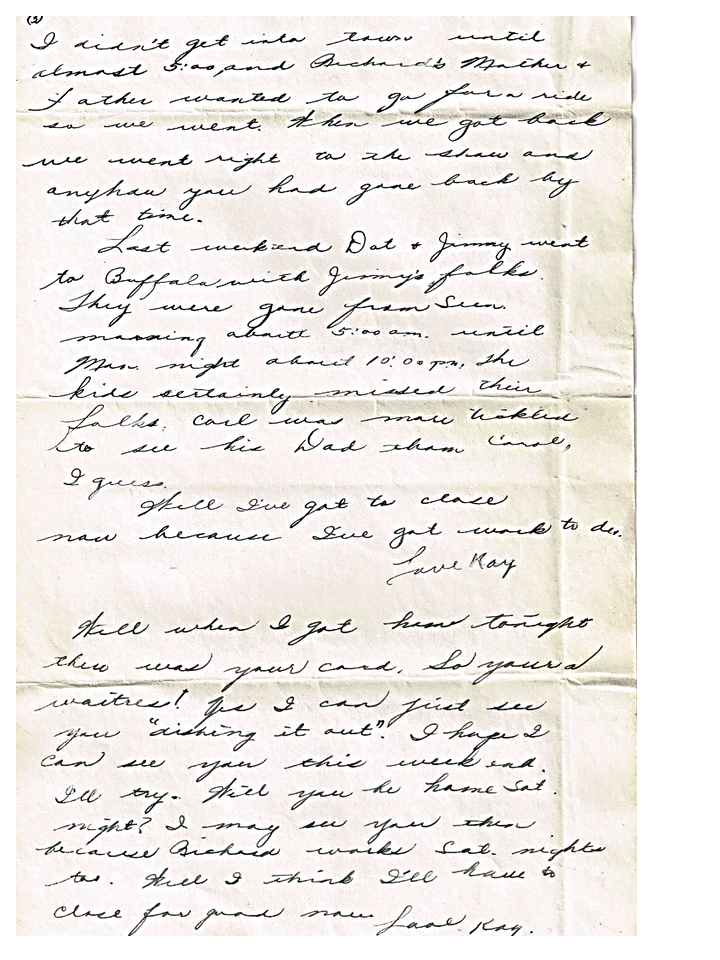 (3)
I didn't get into town until
almost 5:00, and Richard's Mother &
Father wanted to go for a ride
so we went. When we got back
we went right to the show and
anyhow you had gone back by
that time.
Last weekend Dot & Jimmy went
to Buffalo with Jimmy's folks.
They were gone from Sun.
morning about 5:00 am. until
Mon. night about 10:00 pm. The
kids certainly missed their
folks. Carl was more tickled
to see his Dad than Carol,
I guess.
Well I've got to close
now because I've got work to do.
Love Kay
Well when I got home tonight
there was your card. So your a
waitress! Yes I can just see
you "dishing it out". I hope I
can see you this week end.
I'll try. Will you be home Sat.
night? I may see you then
because Richard works Sat. nights
too. Well I think I'll have to
close for good now Love. Kay.